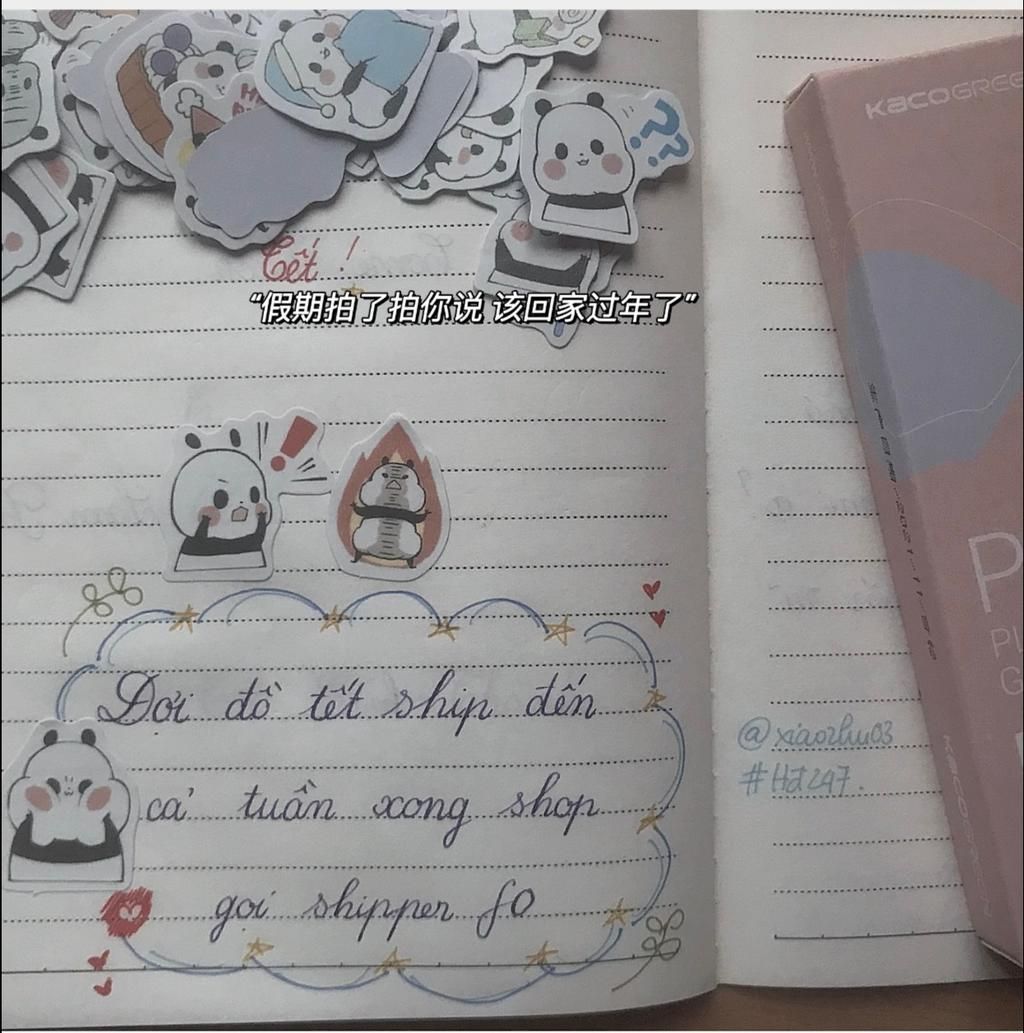 Tết !
“假期拍了拍你说 该回家过年了”
Đợi đồ tết ship đến
cả tuần xong shop
gọi shipper fo
@xiaozhu03
#Hd247.
KACOGREE
??
!
P
PL
G
KACOGREEN